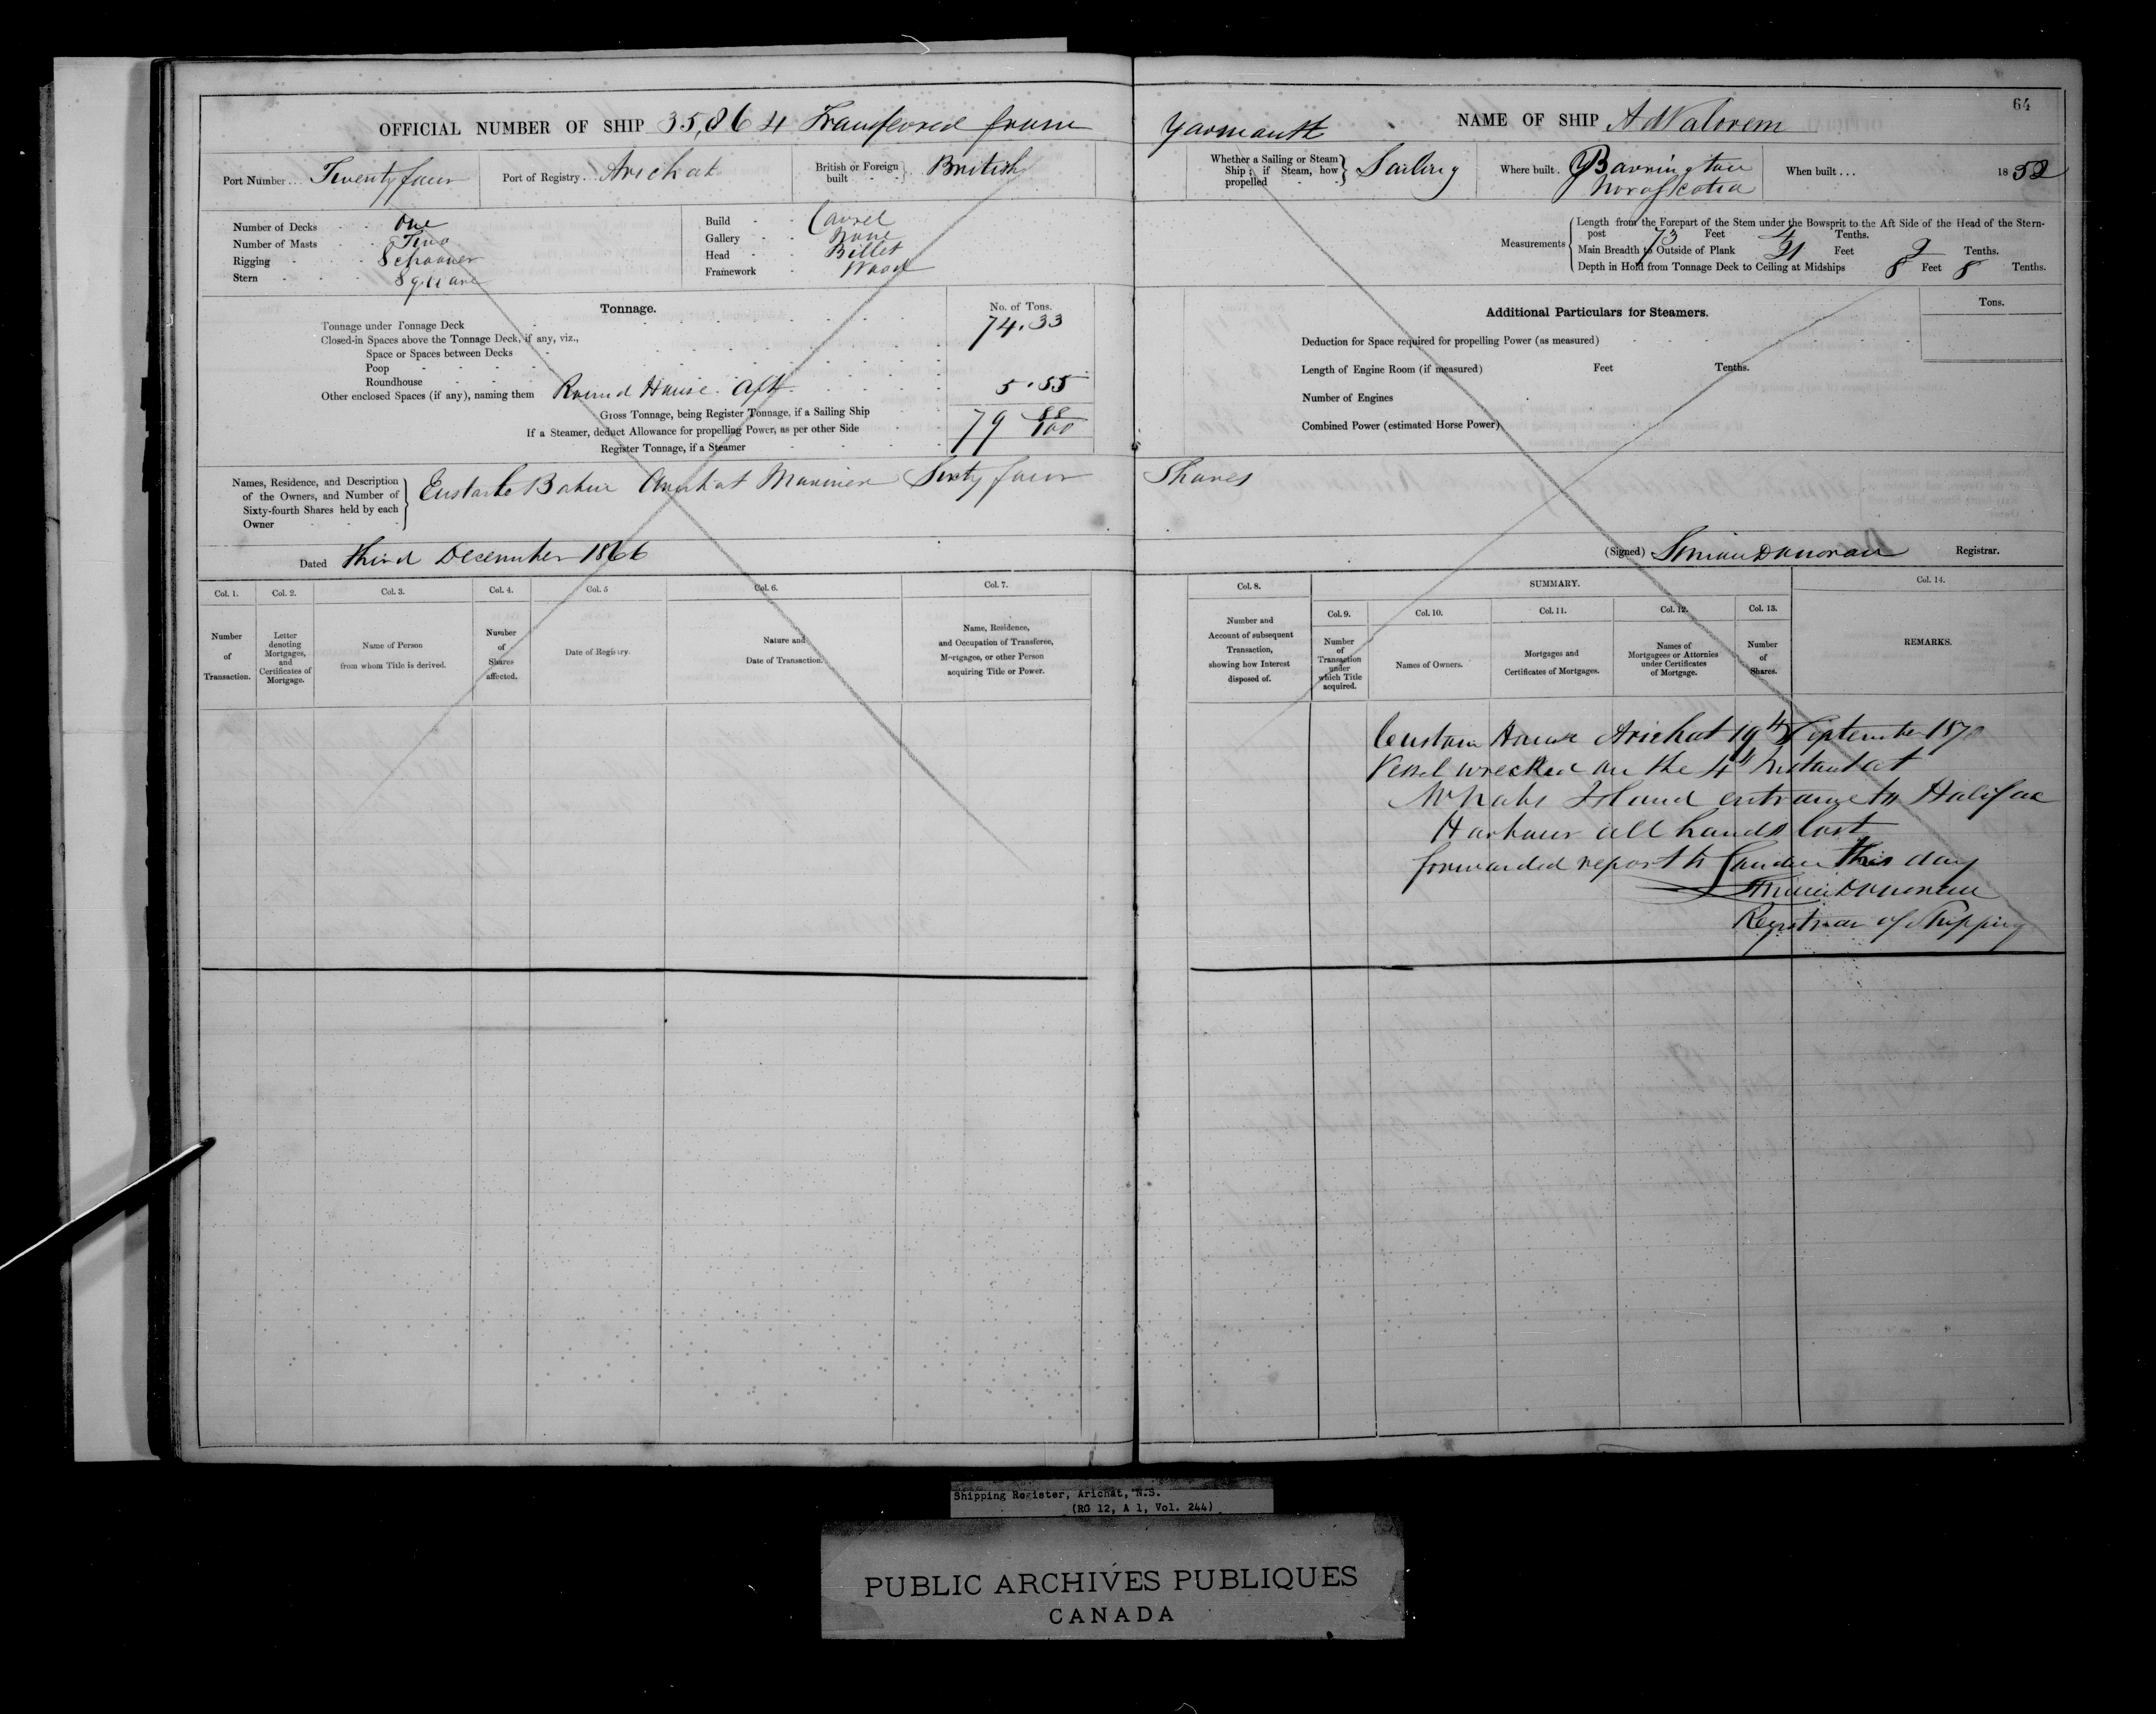 64
OFFICIAL NUMBER OF SHIP 35,864 Transferred from Yarmouth
NAME OF SHIP Ad Valorem
Port Number... Twenty four
Port of Registry... Arichat
British or Foreign built British
Whether a Sailing or Steam Ship; if Steam, how propelled Sailing
Where built. Barrington Nova Scotia
When built... 1852
Number of Decks One
Number of Masts Two
Rigging Schooner
Stern Square
Build Carvel
Gallery None
Head Billet
Framework Wood
Measurements
Length from the Forepart of the Stem under the Bowsprit to the Aft Side of the Head of the Stern-
post 73 Feet 4 Tenths.
Main Breadth to Outside of Plank 21 Feet 2 Tenths.
Depth in Hold from Tonnage Deck to Ceiling at Midships 8 Feet 8 Tenths.
Tonnage.
No. of Tons.
Tonnage under Tonnage Deck 74.33
Closed-in Spaces above the Tonnage Deck, if any, viz.,
Space or Spaces between Decks
Poop
Roundhouse
Other enclosed Spaces (if any), naming them Round House Aft 5.55
Gross Tonnage, being Register Tonnage, if a Sailing Ship
If a Steamer, deduct Allowance for propelling Power, as per other Side 79 88/100
Register Tonnage, if a Steamer
Additional Particulars for Steamers.
Tons.
Deduction for Space required for propelling Power (as measured)
Length of Engine Room (if measured) Feet Tenths.
Number of Engines
Combined Power (estimated Horse Power)
Names, Residence, and Description
of the Owners, and Number of
Sixty-fourth Shares held by each
Owner
Arichat Mariner Sixty four Shares
Dated third December 1866
(Signed) Donovan Registrar.
Col. 1.
Number
of
Transaction.
Col. 2.
Letter
denoting
Mortgages,
and
Certificates of
Mortgage.
Col. 3.
Name of Person
from whom Title is derived.
Col. 4.
Number
of
Shares
affected.
Col. 5
Date of Registry.
Col. 6.
Nature and
Date of Transaction.
Col. 7.
Name, Residence,
and Occupation of Transferee,
Mortgagee, or other Person
acquiring Title or Power.
Col. 8.
Number and
Account of subsequent
Transaction,
showing how Interest
disposed of.
SUMMARY.
Col. 9.
Number
of
Transaction
under
which Title
acquired.
Col. 10.
Names of Owners.
Col. 11.
Mortgages and
Certificates of Mortgages.
Col. 12.
Names of
Mortgagees or Attornies
under Certificates
of Mortgage.
Col. 13.
Number
of
Shares.
Col. 14.
REMARKS.
Custom House Arichat 19th September 1870
Vessel wrecked on the 4th Instant at
Island entrance to Halifax
Harbour all hands lost
forwarded report to London this day
Donovan
Registrar of Shipping
Shipping Register, Arichat, N.S.
(RG 12, A 1, Vol. 244)
PUBLIC ARCHIVES PUBLIQUES
CANADA